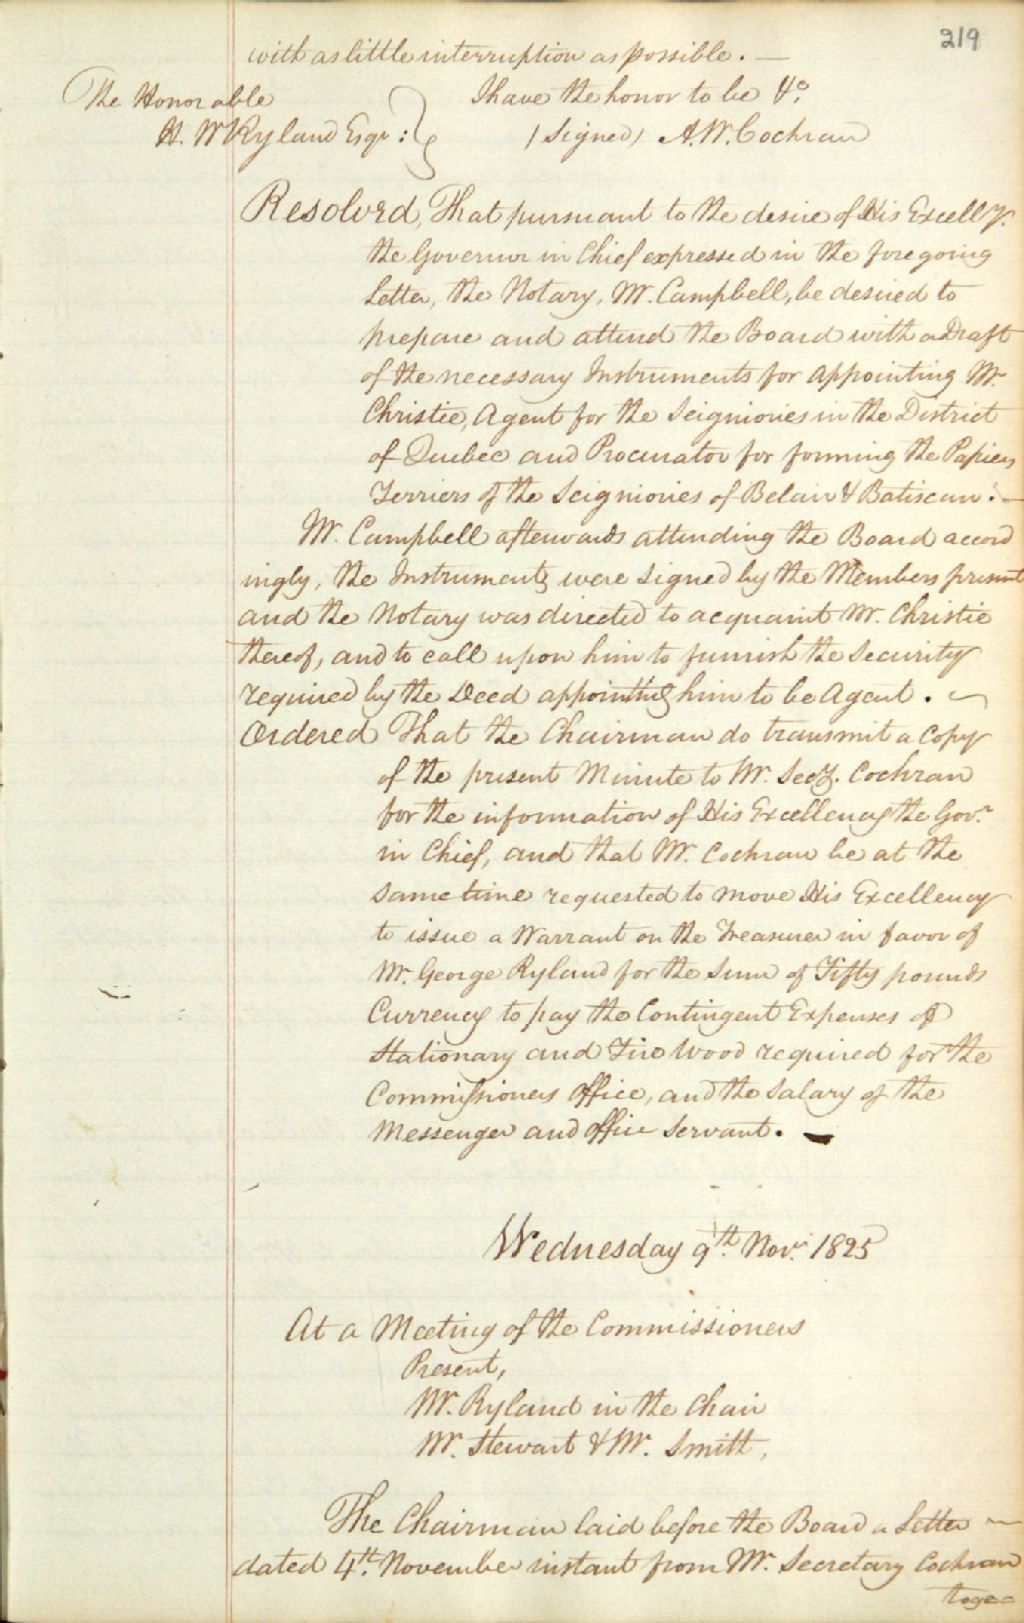 219
with as little interruption as possible. —
The Honorable
H. W Ryland Esqr :}
I have the honor to be &c.
(signed) A. W. Cochran
Resolved, That pursuant to the desire of His Excelly.
the Governor in Chief expressed in the foregoing
Letter, the Notary, Mr. Campbell, be desired to
prepare and attend the Board with a Draft
of the necessary Instruments for appointing Mr.
Christie, Agent for the Seigniories in the District
of Quebec and Procurator for forming the Papiers
Terriers of the Seigniories of Belair & Batiscan. —
Mr. Campbell afterwards attending the Board accord
ingly, the Instruments were signed by the Members present
and the Notary was directed to acquaint Mr. Christie
thereof, and to call upon him to furnish the Security
required by the Deed appointing him to be Agent. —
Ordered That the Chairman do transmit a Copy
of the present Minute to Mr. Secy. Cochran
for the information of His Excellency the Govr.
in Chief, and that Mr. Cochran be at the
same time requested to move His Excellency
to issue a Warrant on the Treasurer in favor of
Mr. George Ryland for the Sum of Fifty pounds
Currency to pay the Contingent Expenses of
Stationary and Fire Wood required for the
Commissioners Office, and the Salary of the
Messenger and Office Servant. —
Wednesday 9th. Novr. 1825
At a Meeting of the Commissioners
Present,
Mr. Ryland in the Chair
Mr. Stewart & Mr. Smith,
The Chairman laid before the Board a Letter —
dated 4th. November instant from Mr. Secretary Cochran
toge=